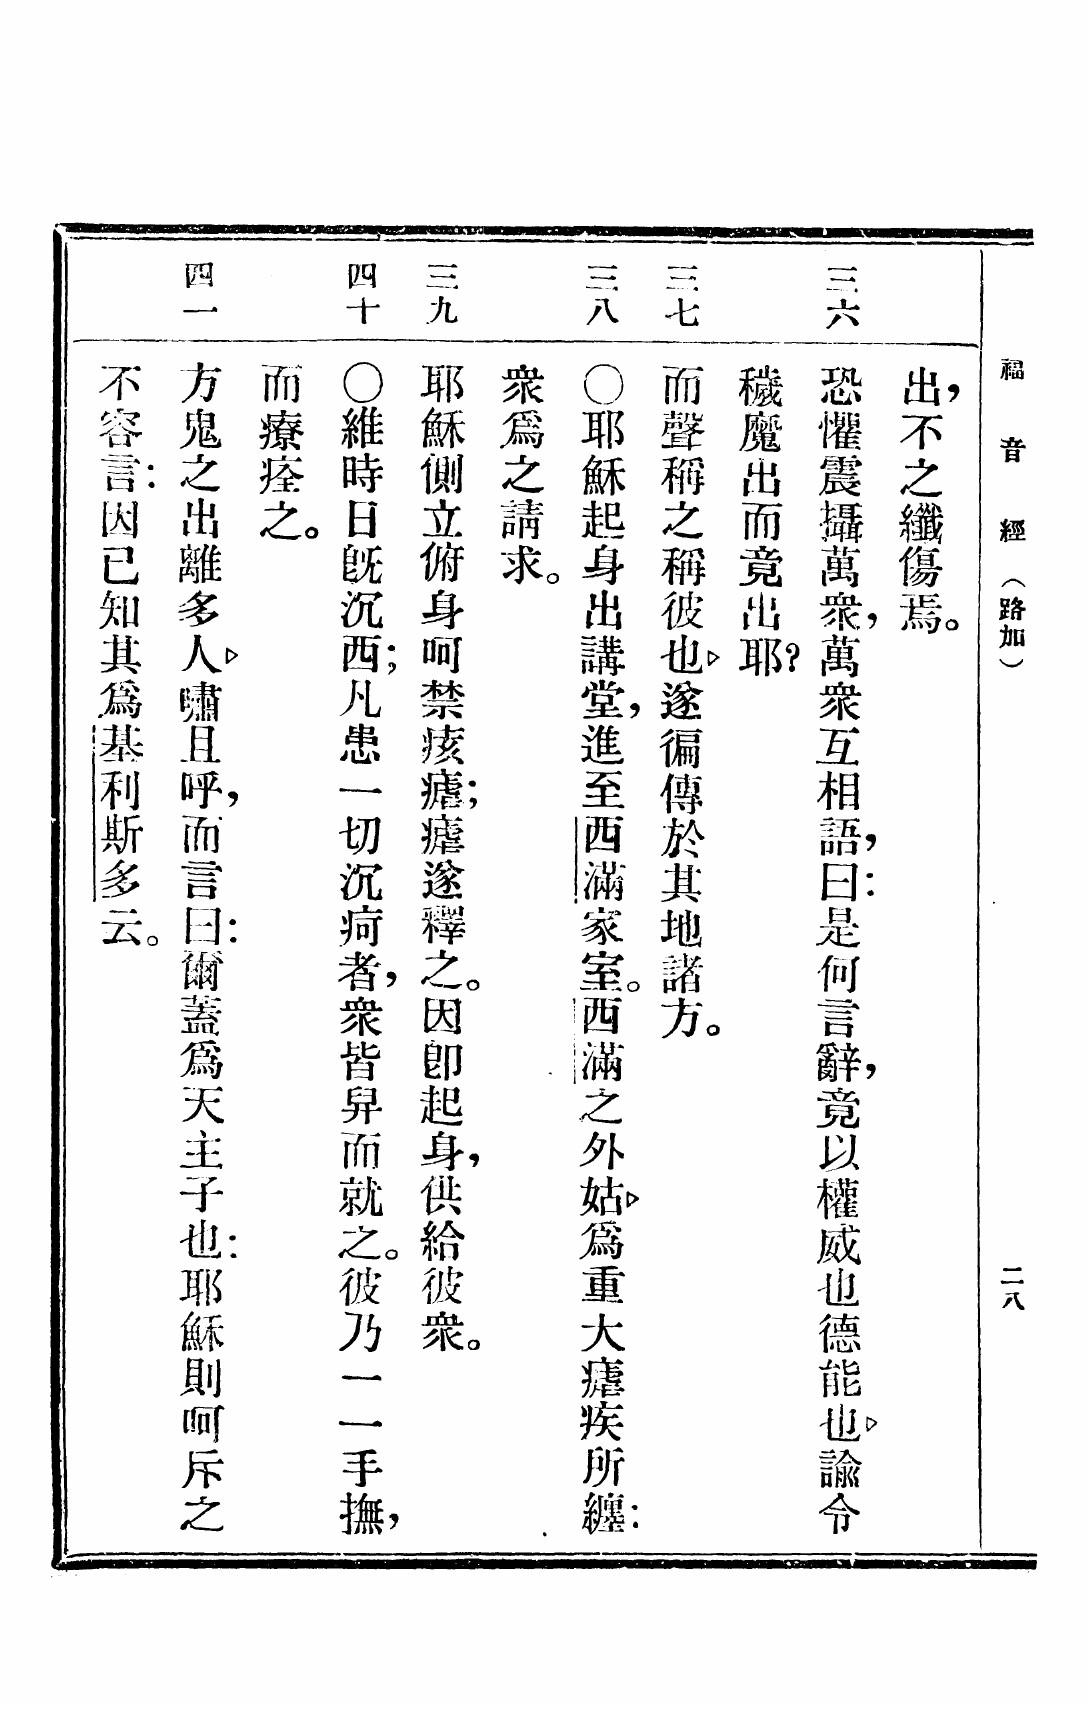 福音經（路加） 二八
出，不之纖傷焉。
三六 恐懼震攝萬衆，萬衆互相語，曰：是何言辭，竟以權威也德能也▹諭令
穢魔出而竟出耶？
三七 而聲稱之稱彼也▹遂徧傳於其地諸方。
三八 ○耶穌起身出講堂，進至西滿家室。西滿之外姑▹爲重大瘧疾所纏：
衆爲之請求。
三九 耶穌側立俯身呵禁痎瘧；瘧遂釋之。因卽起身，供給彼衆。
四十 ○維時日旣沉西；凡患一切沉疴者，衆皆舁而就之。彼乃一一手撫，
而療痊之。
四一 方鬼之出離多人▹嘯且呼，而言曰：爾蓋爲天主子也：耶穌則呵斥之
不容言：因已知其爲基利斯多云。